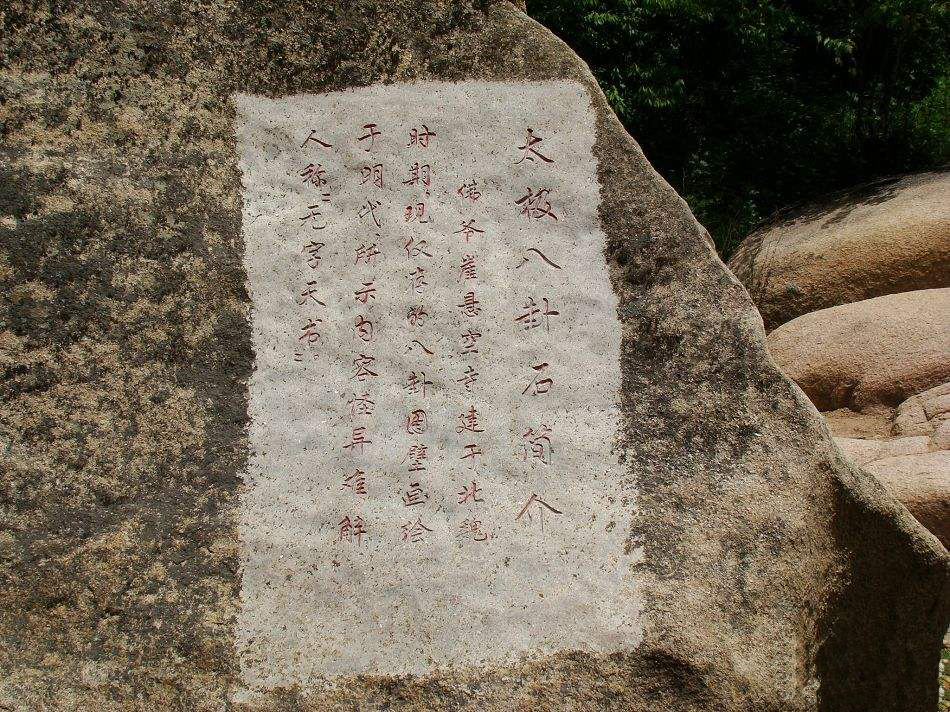 太极八卦石简介
佛爷崖悬空寺建于北魏
时期,现仅存的八卦图壁画绘
于明代,所示内容怪异难解
人称“无字天书”。